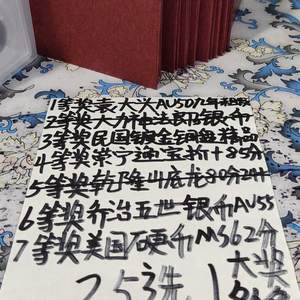 1等奖袁大头AU50九年
2等奖大力神法郎银币
3等奖民国镀金铜盘精品
4等奖崇宁通宝折十85分
5等奖乾隆 底龙80分
6等奖乔治五世银币AU55
7等奖美国硬币MS62分
253选1大奖